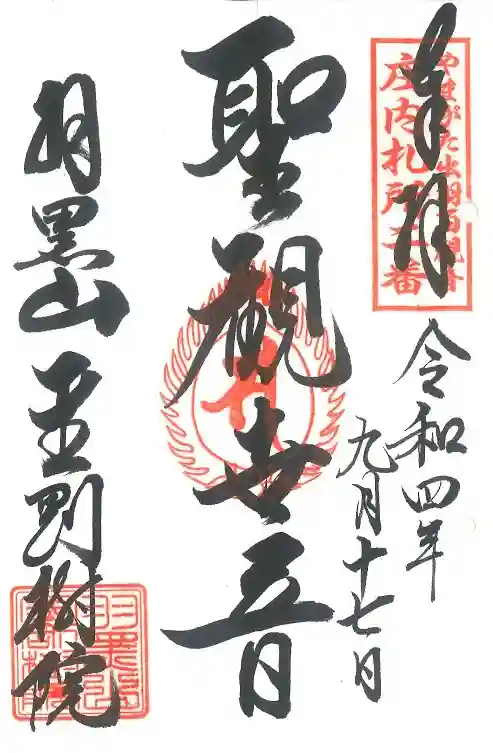 奉拝
やまがた出羽百観音
庄内札所二番
令和四年
九月十七日
聖観世音
羽黒山 金剛樹院